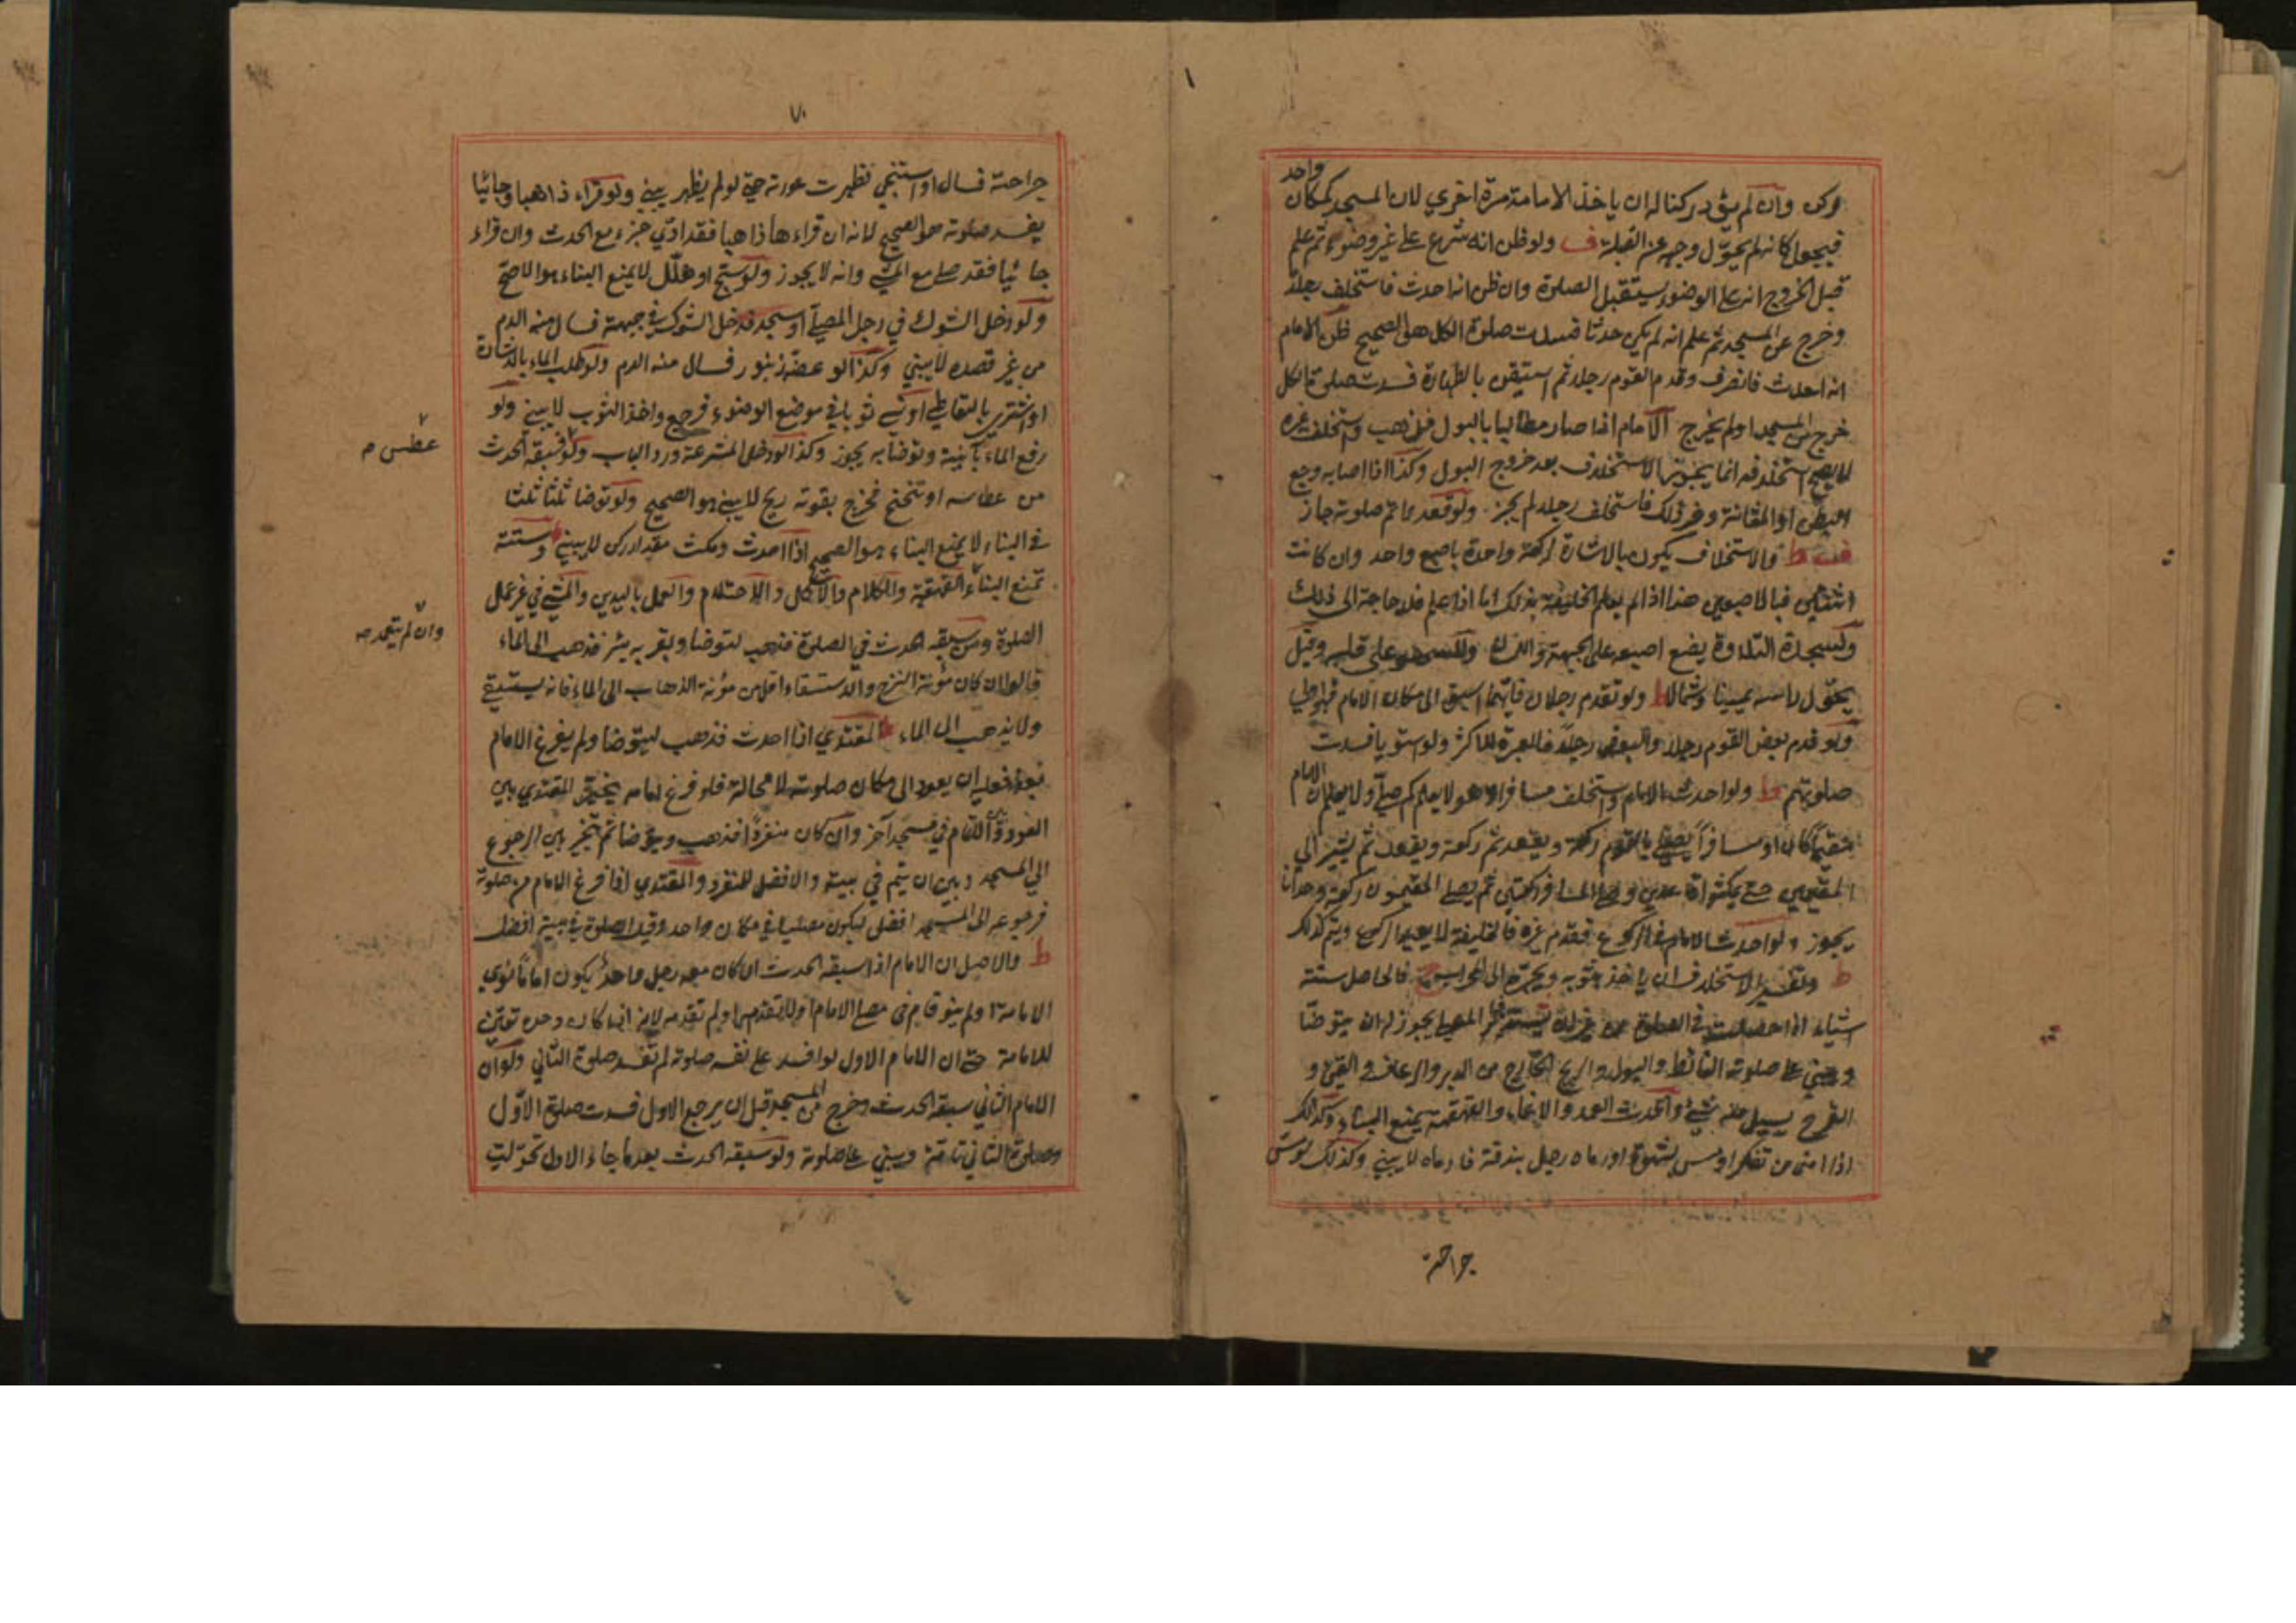 واحد
ركن وان لم يؤد ركنا له ان ياخذ الامامة مرة اخري لان المسجد كمكان
فيجعل كانه لم يحوّل وجهه عن القبلة ف ولو ظن انه شرع على غير وضوء ثم علم
قبل الخروج انه على الوضوء يستقبل الصلوة وان ظن انه احدث فاستخلف رجلا
وخرج عن المسجد ثم علم انه لم يكن حدثا فسدت صلوة الكل هو الصحيح ظن الامام
انه احدث فانصرف وقدم القوم رجلا ثم استيقن بالطهارة فسدت صلوة الكل
خرج من المسجد اولم يخرج الامام اذا صار مطالبا بالبول فذهب واستخلف غيره
لا يصح استخلافه انما يجوز الاستخلاف بعد خروج البول وكذا اذا اصابه وجع
البطن او المثانة وغير ذلك فاستخلف رجلا لم يجز ولو قعد فاتم صلوته جاز
والاستخلاف يكون بالاشارة لركعة واحدة باصبع واحد وان كانت
اثنتين فبالاصبعين هذا اذا لم يعلم الخليفة بذلك اما اذا علم فلا حاجة الى ذلك
ولسجدة التلاوة يضع اصبعه على الجبهة واللسان وللسهو على قلبه وقيل
يحوّل راسه يمينا وشمالا ط ولو تقدم رجلان فايهما اسبق الى مكان الامام فهو اولى
ولو قدم بعض القوم رجلا والبعض رجلا فالعبرة للاكثر ولو استويا فسدت
صلوتهم ط ولو احدث الامام واستخلف مسافرا وهو لا يعلم كم صلّى ولا يعلم ان الامام
مقيما كان او مسافرا يصلي بالقوم ركعة ويقعد ثم ركعة ويقعد ثم يشير الى
المقيمين حتى يمكثوا قاعدين وصلى المسافر ركعتين ثم يصلي المقيمون ركعة وحدانا
يجوز ولو احدث الامام في الركوع فقدم غيره فالخليفة لا يعيد الركوع ويتم كذلك
ط وتفسير الاستخلاف ان ياخذ بثوبه ويجرّه الى المحراب فالحاصل ستة
اشياء اذا حصلت في الصلوة من غير المصلي يجوز له ان يتوضأ
ويبني على صلوته الغائط والبول والريح الخارج من الدبر والرعاف والقيء و
القرح يسيل منه شيء والحدث العمد والاغماء والقهقهة يمنع البناء وكذلك
اذا امنى من تفكر او مس بشهوة اورماه رجل ببندقة فادماه لا يبني وكذلك لو شق
جراحته
٧٠
جراحته فسال او استنجى فظهرت عورته حتى لو لم يظهر يبني ولو قراء ذاهبا وجائيا
يفسد صلوته هو الصحيح لانه ان قراءها ذاهبا فقد ادّى جزء مع الحدث وان قراء
جائيا فقد صلى مع المشي وانه لا يجوز ولو سبّح او هلّل لا يمنع البناء هو الاصح
ولو دخل الشوك في رجل المصلّي او سجد فدخل الشوك في جبهته فسال منه الدم
من غير قصده لا يبني وكذا لو عضّه زنبور فسال منه الدم ولو طلب الماء بالاشارة
او اشترى بالتعاطي او نسي ثوبا في موضع الوضوء فرجع واخذ الثوب لا يبني ولو
رفع الماء بآنية وتوضأ به يجوز وكذا لو دخل المشرعة ورد الباب ولو سبقه الحدث
عطس م
من عطاسه او تنحنح فخرج بقوته ريح لا يبني هو الصحيح ولو توضا ثلثا ثلثا
في البناء لا يمنع البناء هو الصحيح اذا احدث ومكث مقدار ركن لا يبني وستة
تمنع البناء القهقهة والكلام والاكل والاحتلام والعمل باليدين والمشي في غير عمل
وان لم يتعمد صه
الصلوة ومن سبقه الحدث في الصلوة فذهب ليتوضا وبقربه بئر فذهب الى الماء
قالوا ان كان مؤنة النزح والاستسقاء اقل من مؤنة الذهاب الى الماء فانه يستقي
ولا يذهب الى الماء المقتدي اذا احدث فذهب ليتوضا ولم يفرغ الامام
بعد فعليه ان يعود الى مكان صلوته لا محالة فلو فرغ امامه يخير المقتدي بين
العود والاتمام في مسجد آخر وان كان منفردا فذهب ويتوضا ثم يتخير بين الرجوع
الي المسجد وبين ان يتم في بيته والافضل للمنفرد والمقتدي اذا فرغ الامام من صلوته
فرجوعه الى المسجد افضل ليكون مصليا في مكان واحد وقيل الصلوة في بيته افضل
ط والاصل ان الامام اذا سبقه الحدث ان كان معه رجل واحد يكون اماما نوى
الامامة او لم ينو قام في مصلى الامام اولا تقدم او لم تقدمه لانه اذا كان وحده تعيّن
للامامة حتى ان الامام الاول لو افسد على نفسه صلوته لم تفسد صلوة الثاني ولو ان
الامام الثاني سبقه الحدث وخرج من المسجد قبل ان يرجع الاول فسدت صلوة الاوّل
وصلوة الثاني تامّة ويبني على صلوته ولو سبقه الحدث بعدما جاء الاول تحوّلت